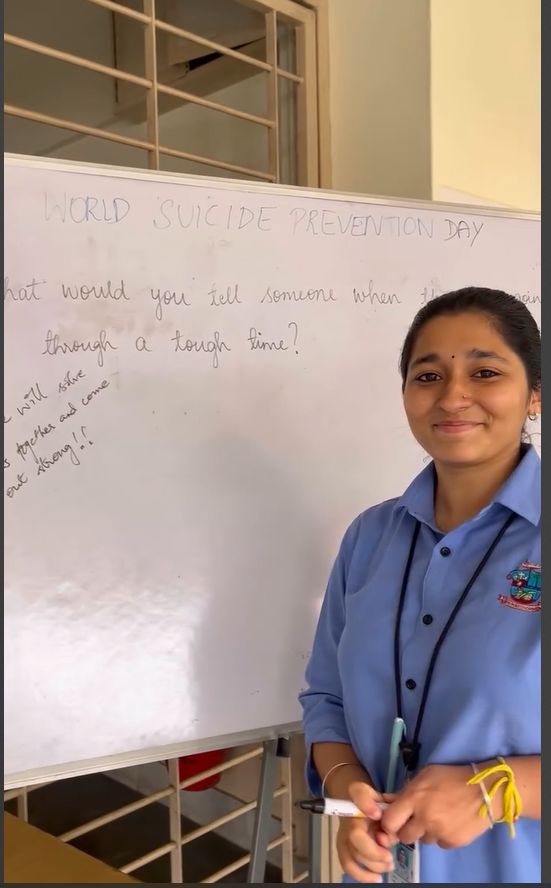 WORLD SUICIDE PREVENTION DAY
hat would you tell someone when
through a tough time?
will solve
together and come
out strong!!